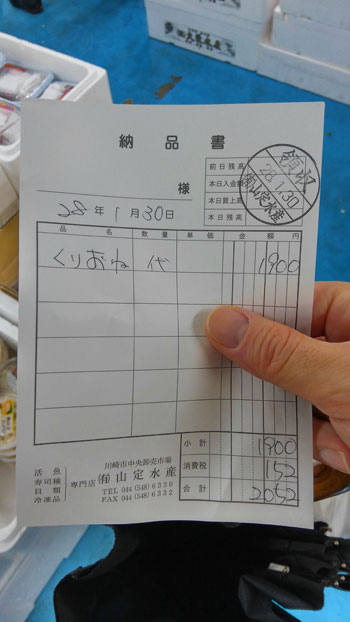 納品書
様
28年1月30日
前日残高
本日入金額
本日買上高
本日残高
領収
28.1.30
(有)山定水産
品名 数量 単価 金額 円
くりおね 代 1900
小計 1900
消費税 152
合計 2052
活魚
寿司種
貝類
冷凍品
専門店
川崎市中央卸売市場
(有)山定水産
TEL 044 (548) 6330
FAX 044 (548) 6332